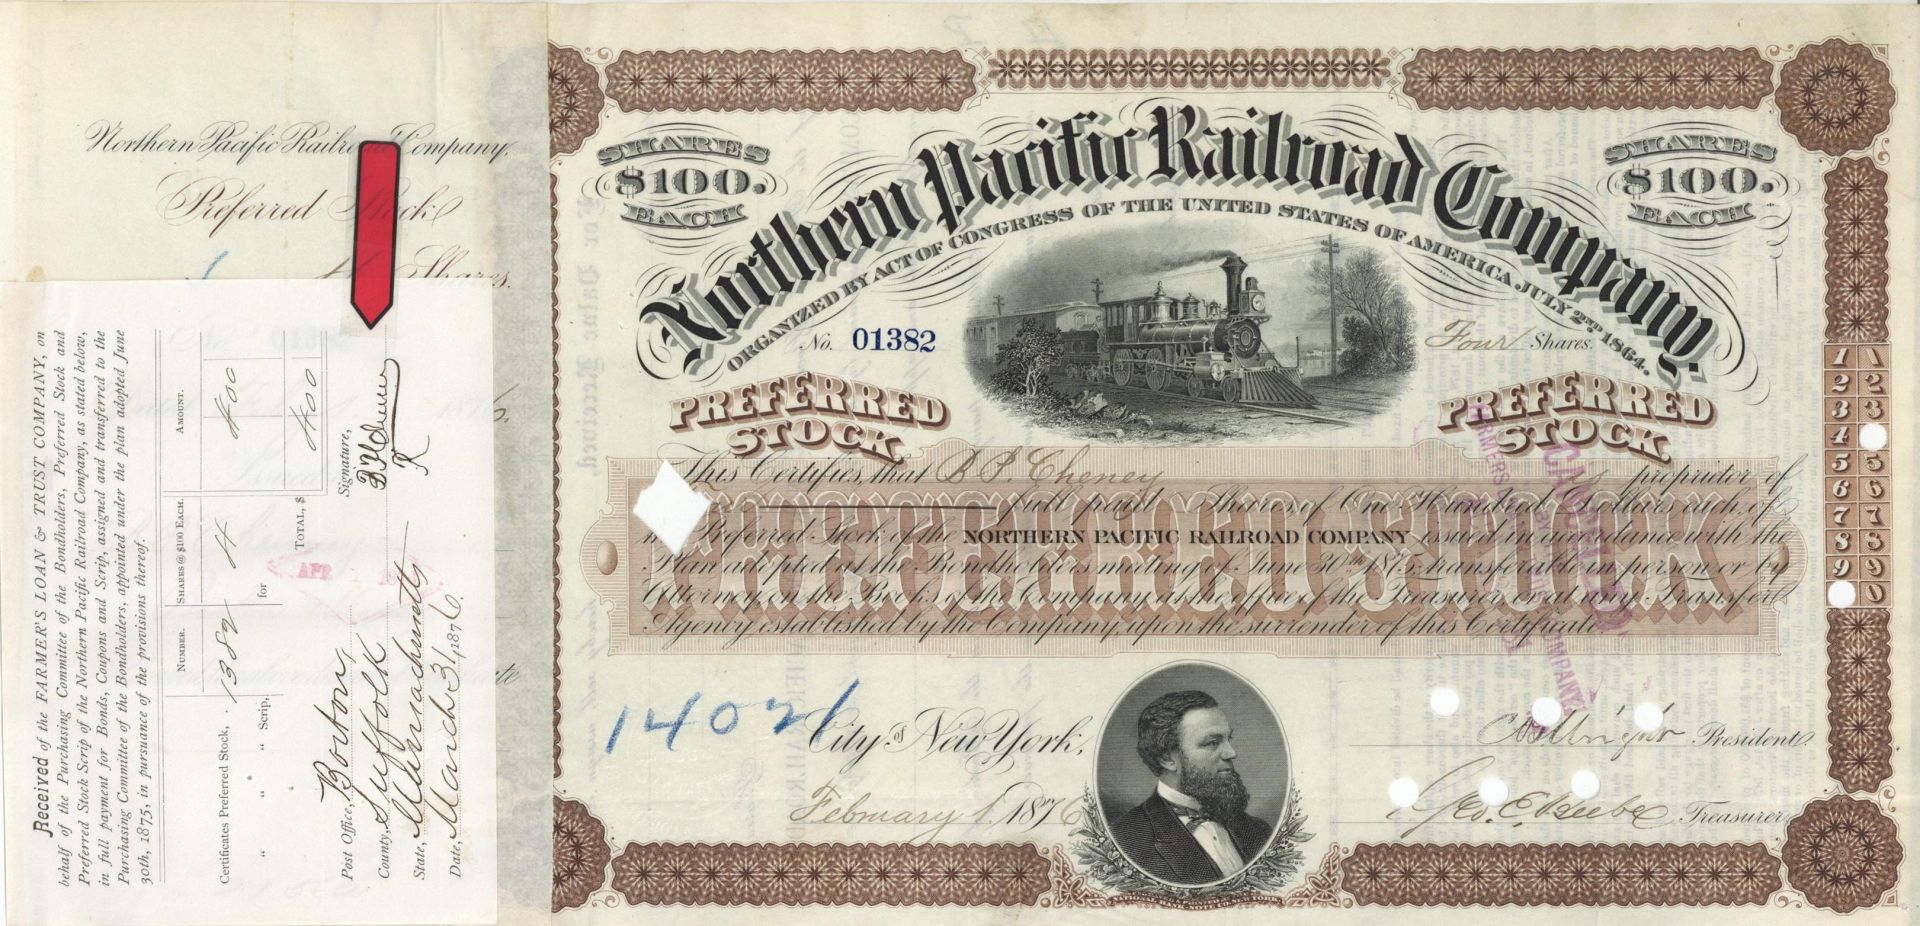 Northern Pacific Railroad Company,
Preferred Stock
Shares.
Received of the FARMER'S LOAN & TRUST COMPANY, on
behalf of the Purchasing Committee of the Bondholders, Preferred Stock and
Preferred Stock Scrip of the Northern Pacific Railroad Company, as stated below,
in full payment for Bonds, Coupons and Scrip, assigned and transferred to the
Purchasing Committee of the Bondholders, appointed under the plan adopted June
30th, 1875, in pursuance of the provisions thereof.
NUMBER. SHARES @ $100 EACH. AMOUNT.
Certificates Preferred Stock, 1382 4 400
" " " Scrip, for
TOTAL, $ 400
APR
Signature,
B P Cheney
R
Post Office, Boston,
County, Suffolk
State, Massachusetts
Date, March 31, 1876.
SHARES
$100.
EACH
SHARES
$100.
EACH
Northern Pacific Railroad Company.
ORGANIZED BY ACT OF CONGRESS OF THE UNITED STATES OF AMERICA, JULY 2ND 1864.
No. 01382
Four Shares.
PREFERRED
STOCK
PREFERRED
STOCK
This Certifies, that B. P. Cheney is proprietor of
full paid Shares of One Hundred Dollars each of
Preferred Stock of the NORTHERN PACIFIC RAILROAD COMPANY issued in accordance with the
Plan adopted at the Bondholders meeting of June 30th 1875, transferable in person or by
Attorney, on the Books of the Company at the office of the Treasurer, or at any Transfer
Agency established by the Company, upon the surrender of this Certificate.
PREFERRED STOCK
CANCELLED
FARMERS COMPANY
1 1
2 2
3 3
4
5 5
6 6
7 7
8 8
9 9
0
14021
City of New York,
February 1. 1876
C B Wright President.
Geo. E. Beebe Treasurer.
NATIONAL BANK NOTE CO. NEW YORK